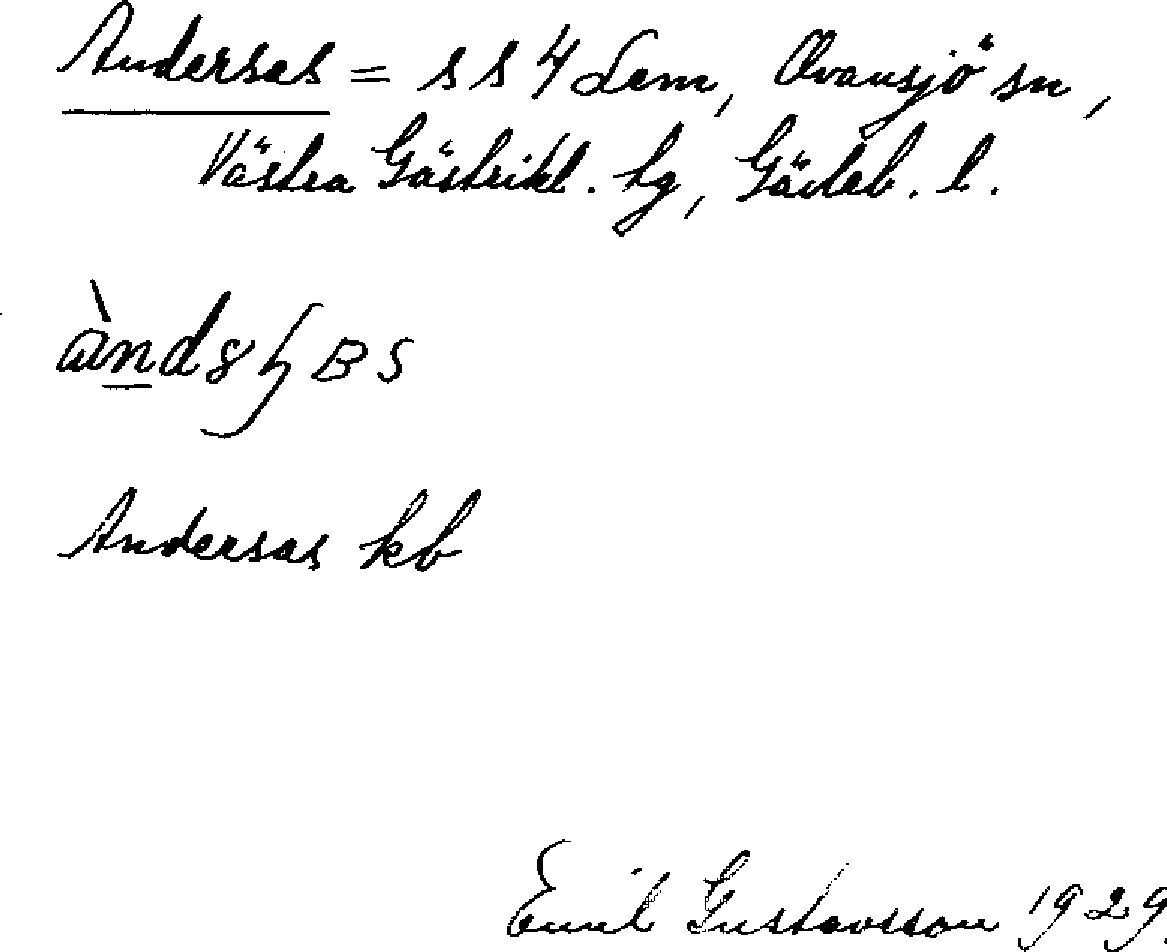 Andersas = s s 4 Lem, Ovansjö sn,
Västra Gästrikl. hg, Gävleb. l.
Andersas kb
Emil Gustavsson 1929.